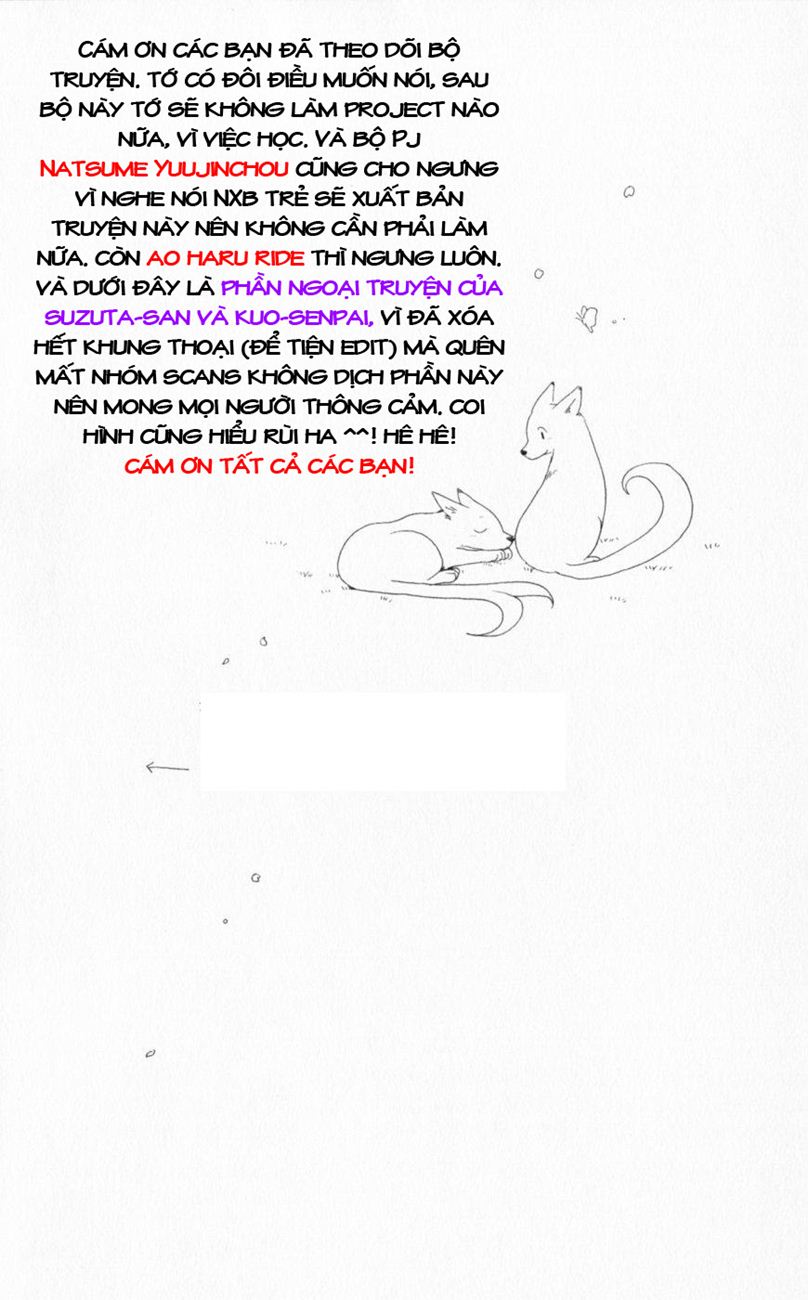 CÁM ƠN CÁC BẠN ĐÃ THEO DÕI BỘ
TRUYỆN. TỚ CÓ ĐÔI ĐIỀU MUỐN NÓI, SAU
BỘ NÀY TỚ SẼ KHÔNG LÀM PROJECT NÀO
NỮA, VÌ VIỆC HỌC. VÀ BỘ PJ
NATSUME YUUJINCHOU CŨNG CHO NGƯNG
VÌ NGHE NÓI NXB TRẺ SẼ XUẤT BẢN
TRUYỆN NÀY NÊN KHÔNG CẦN PHẢI LÀM
NỮA. CÒN AO HARU RIDE THÌ NGƯNG LUÔN.
VÀ DƯỚI ĐÂY LÀ PHẦN NGOẠI TRUYỆN CỦA
SUZUTA-SAN VÀ KUO-SENPAI, VÌ ĐÃ XÓA
HẾT KHUNG THOẠI (ĐỂ TIỆN EDIT) MÀ QUÊN
MẤT NHÓM SCANS KHÔNG DỊCH PHẦN NÀY
NÊN MONG MỌI NGƯỜI THÔNG CẢM. COI
HÌNH CŨNG HIỂU RÙI HA ^^! HÊ HÊ!
CÁM ƠN TẤT CẢ CÁC BẠN!